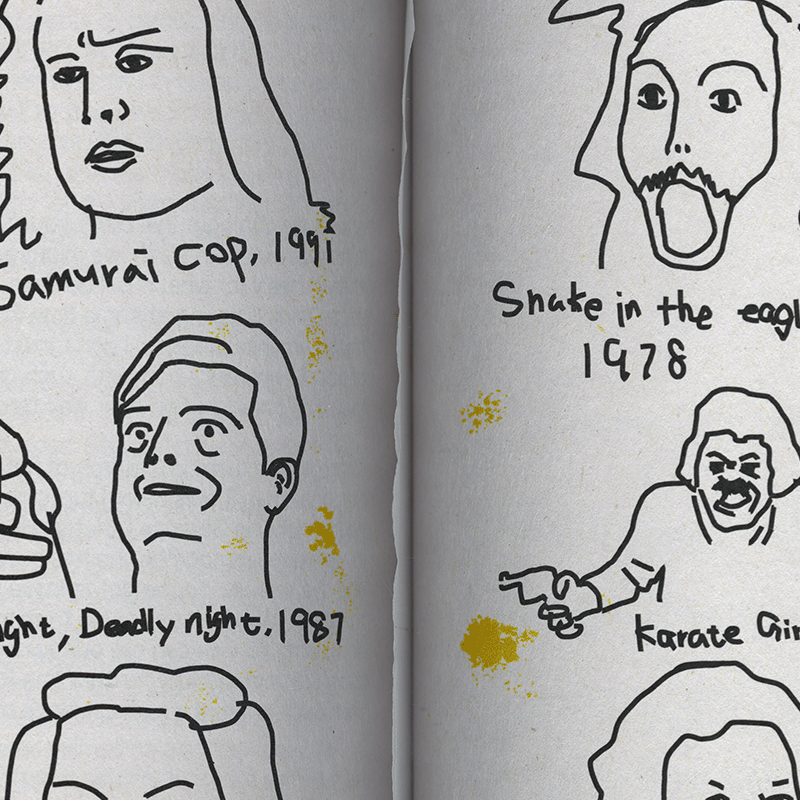 Samurai Cop, 1991
ght, Deadly night, 1987
Snake in the eagl
1978
Karate Gir